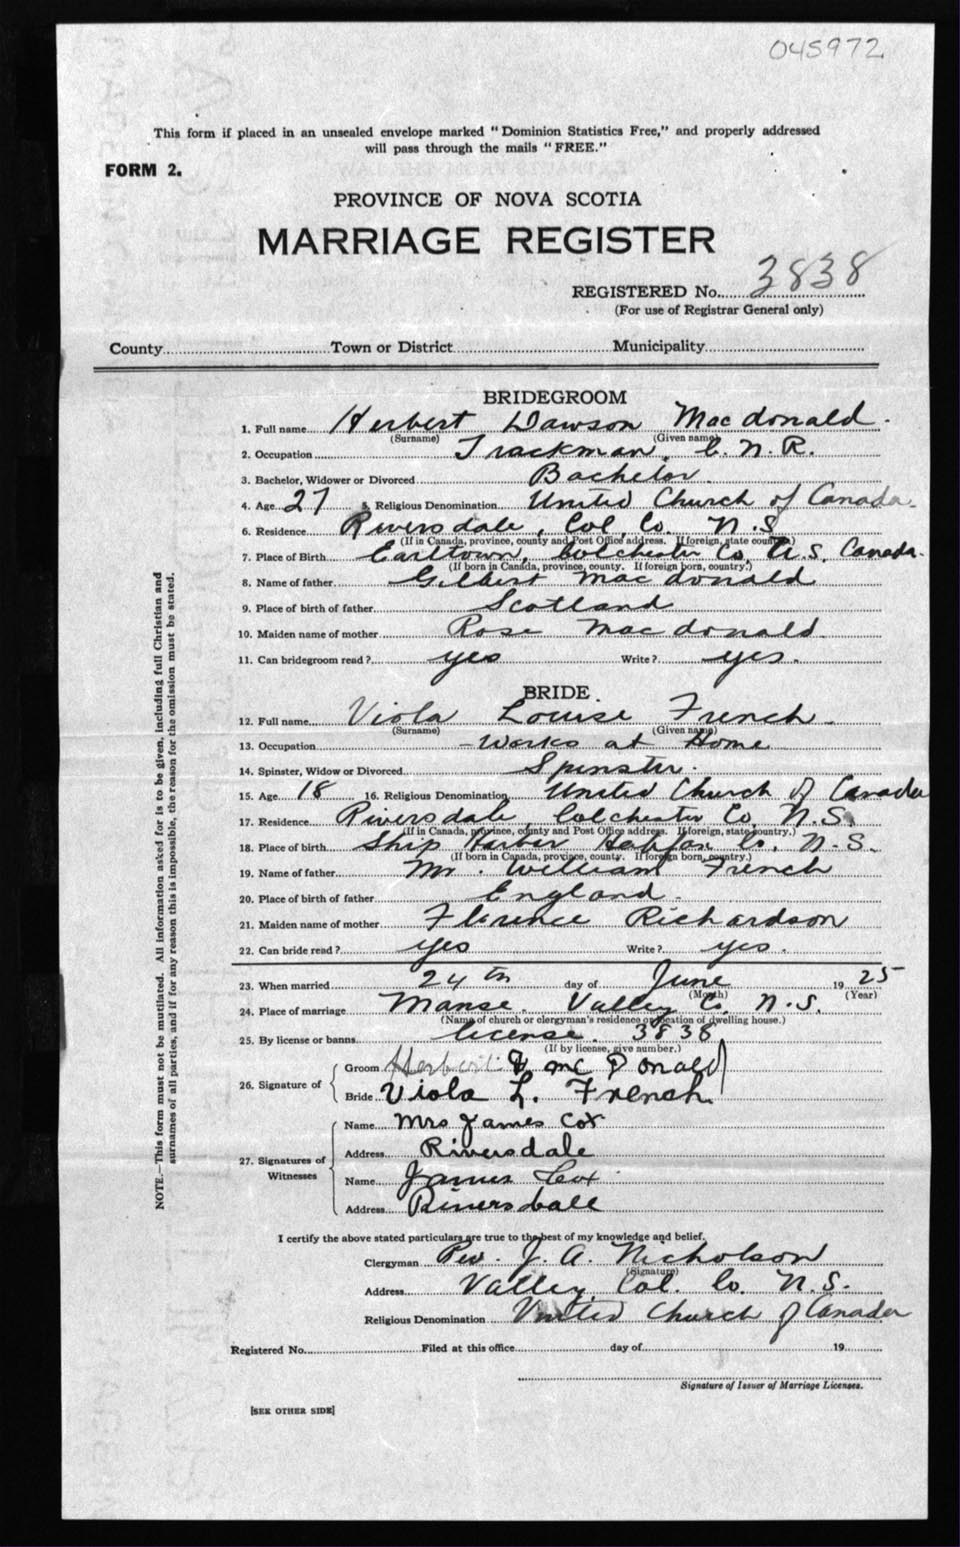 045972
This form if placed in an unsealed envelope marked "Dominion Statistics Free," and properly addressed
will pass through the mails "FREE."
FORM 2.
PROVINCE OF NOVA SCOTIA
MARRIAGE REGISTER
REGISTERED No. 3838
(For use of Registrar General only)
County Town or District Municipality
BRIDEGROOM
1. Full name Herbert Dawson Macdonald
(Surname) (Given name)
2. Occupation Trackman, C. N. R.
3. Bachelor, Widower or Divorced Bachelor
4. Age 27 5. Religious Denomination United Church of Canada
6. Residence Riversdale, Col. Co. N.S
(If in Canada, province, county and Post Office address. If foreign, state country.)
7. Place of Birth Earltown, Colchester Co. N.S. Canada
(If born in Canada, province, county. If foreign born, country.)
8. Name of father Gilbert Macdonald
9. Place of birth of father Scotland
10. Maiden name of mother Rose Macdonald
11. Can bridegroom read? yes Write? yes.
BRIDE
12. Full name Viola Louise French
(Surname) (Given name)
13. Occupation Works at Home
14. Spinster, Widow or Divorced Spinster.
15. Age 18 16. Religious Denomination United Church of Canada
17. Residence Riversdale, Colchester Co. N.S.
(If in Canada, province, county and Post Office address. If foreign, state country.)
18. Place of birth Ship Harbor Halifax Co. N.S.
(If born in Canada, province, county. If foreign born, country.)
19. Name of father Mr. William French
20. Place of birth of father England.
21. Maiden name of mother Florence Richardson
22. Can bride read? yes Write? yes.
23. When married 24th day of June 1925
(Month) (Year)
24. Place of marriage Manse, Valley Co. N.S.
(Name of church or clergyman's residence or location of dwelling house.)
25. By license or banns license. 3838
(If by license, give number.)
26. Signature of
Groom Herbert McDonald
Bride Viola L. French
27. Signatures of Witnesses
Name Mrs James Cox
Address Riversdale
Name James Cox
Address Riversdale
I certify the above stated particulars are true to the best of my knowledge and belief.
Clergyman Rev. J. A. Nicholson
(Signature)
Address Valley, Col. Co. N.S.
Religious Denomination United Church of Canada
Registered No. Filed at this office day of 19
Signature of Issuer of Marriage Licenses.
[SEE OTHER SIDE]
NOTE.—This form must not be mutilated. All information asked for is to be given, including full Christian and
surnames of all parties, and if for any reason this is impossible, the reason for the omission must be stated.